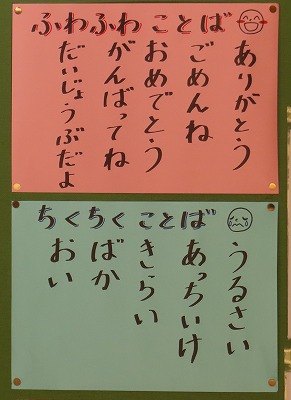 ふわふわことば
ありがとう
ごめんね
おめでとう
がんばってね
だいじょうぶだよ
ちくちくことば
うるさい
あっちいけ
きらい
ばか
おい